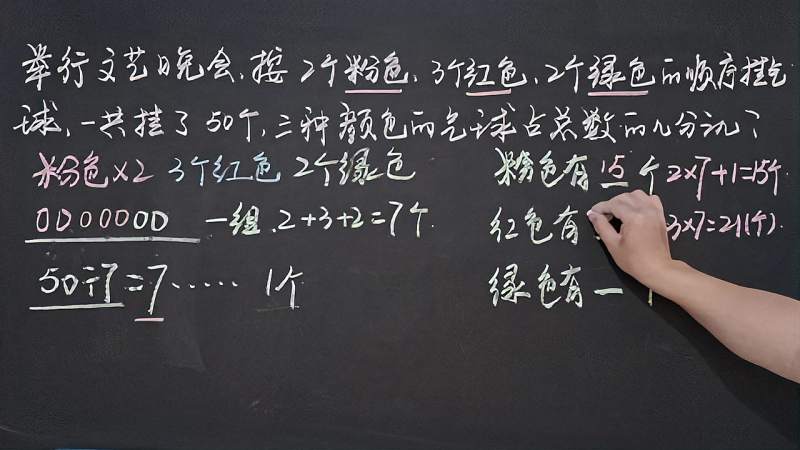 举行文艺晚会,按2个粉色,3个红色,2个绿色的顺序挂气
球,一共挂了50个,三种颜色的气球占总数的几分之几?
粉色×2 3个红色 2个绿色
0000000 一组.2+3+2=7个
50÷7=7……1个
粉色有15个 2×7+1=15个
红色有 3×7=21(个)
绿色有一个